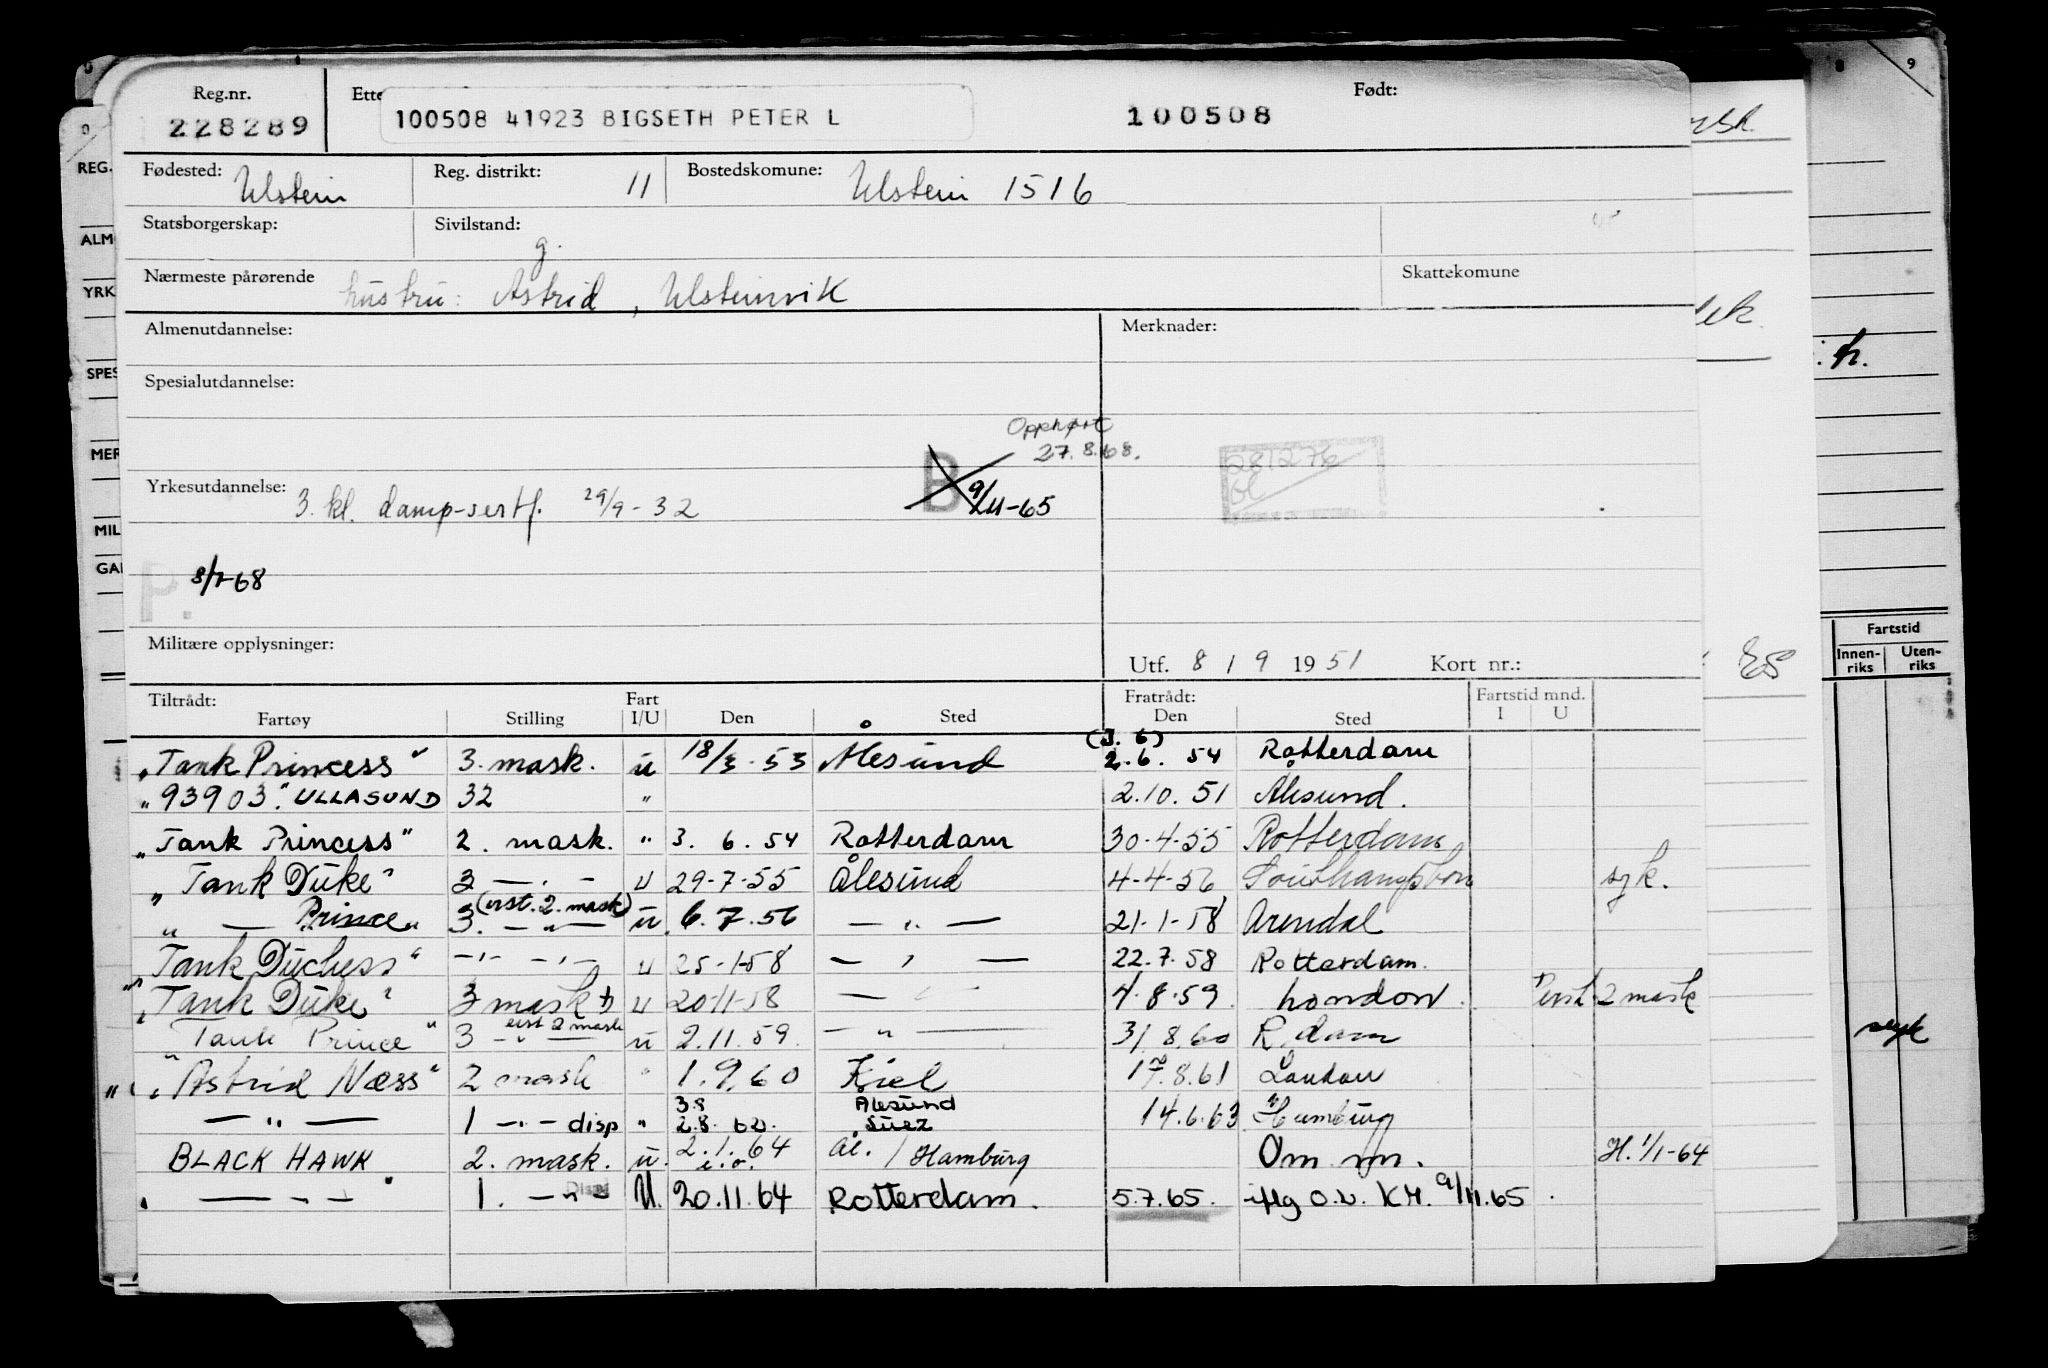 Reg.nr. Ette Født:
228289 100508 41923 BIGSETH PETER L 100508
Fødested: Ulstein Reg. distrikt: 11 Bostedskomune: Ulstein 1516
Statsborgerskap: Sivilstand: g.
Nærmeste pårørende hustru: Astrid, Ulsteinvik Skattekomune
Almenutdannelse: Merknader:
Spesialutdannelse:
Opphørt
27.8.68.
B 9/11-65
281276
Yrkesutdannelse: 3. kl. damp-sertf. 29/9-32
P.
Militære opplysninger:
Utf. 8 / 9 1951 Kort nr.:
Tiltrådt: Fart Fratrådt: Fartstid mnd.
Fartøy Stilling I/U Den Sted Den Sted I U
„Tank Princess" 3. mask. u 18/3-53 Ålesund (3.6) 2.6. 54 Rotterdam
„93903." ULLASUND 32 " 2.10.51 Ålesund.
„Tank Princess" 2. mask. " 3. 6. 54 Rotterdam 30-4-55 Rotterdam
„Tank Duke" 3 — . — u 29-7-55 Ålesund 4-4-56 Southampton syk.
„ — Prince" 3. — " — (erst. 2. mask) u. 6.7.56 — " — 21-1-58 Arendal
„Tank Duchess" — " — — " — u 25-1-58 — " — 22.7.58 Rotterdam.
„Tank Duke" 3 mask u 20-11-58 — " — 4.8.59. London. 2 mask
„Tank Prince" 3 — " — erst 2 mask u 2.11.59. — " — 31.8.60 R.dam
„Astrid Næss" 2 mask " 1.9.60 Kiel 17.8.61 London
— " — 1 — " — disp " 3.8 2.8. 62. Ålesund Suez 14.6.63 Hamburg
BLACK HAWK 2. mask. u. 2.1.64 i.o. Ål. / Hamburg Om mn. H. 1/1-64
" — " — " 1. — " — Disp U. 20.11.64 Rotterdam. 5.7.65. iflg O.V. KM. 9/11.65.
REG.
ALM
YRK
SPES
MER
MIL
GAI
9
Fartstid
Innen-
riks
Uten-
riks